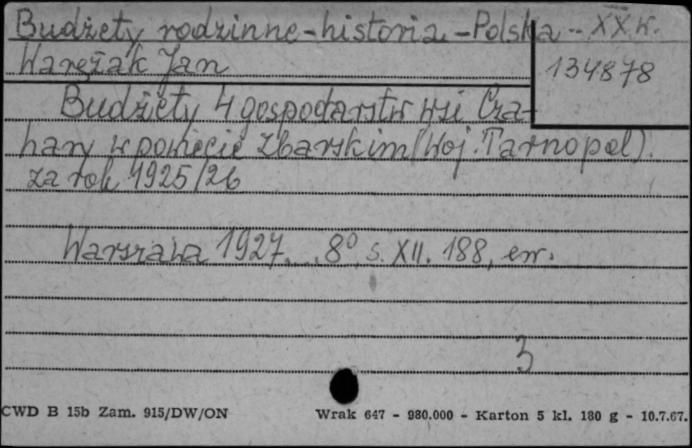 Budżety rodzinne - historia - Polska - XX w.
Warężak Jan
134878
Budżety 4 gospodarstw wsi Cza-
hary w powiecie zbarskim (woj. Tarnopol).
za rok 1925/26
Warszawa 1927. 8° s. XII. 188, err.
3
CWD B 15b Zam. 915/DW/ON Wrak 647 - 980.000 - Karton 5 kl. 180 g - 10.7.67.